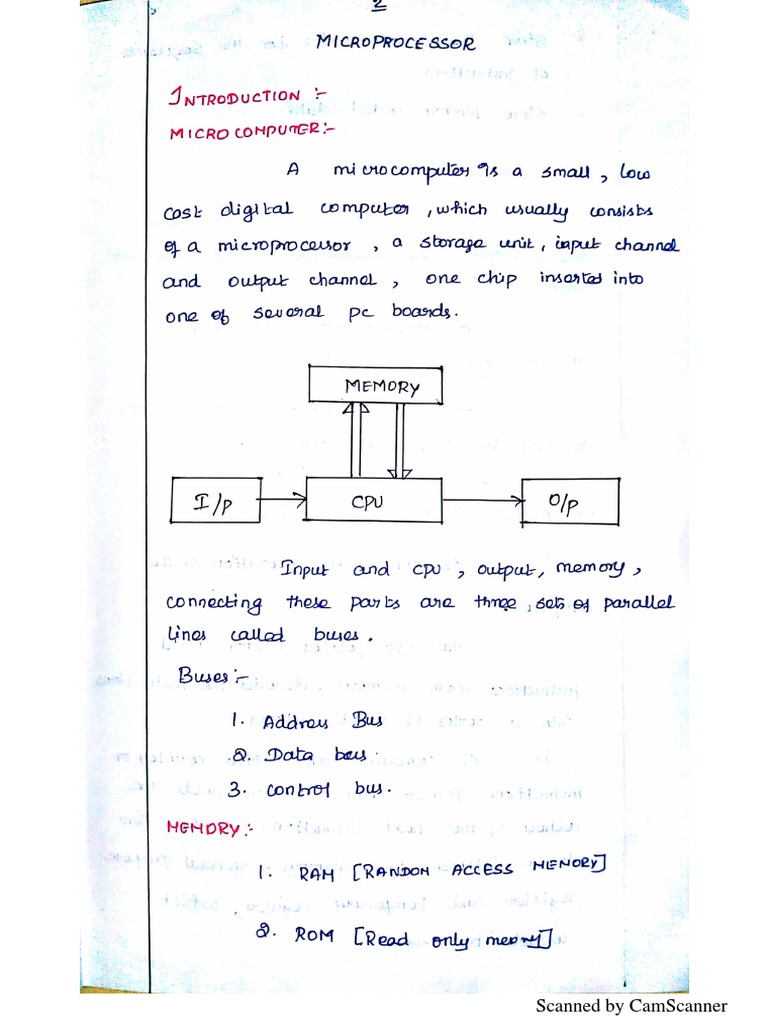 2
MICROPROCESSOR
INTRODUCTION :-
MICRO COMPUTER:-
A microcomputer is a small, low
cost digital computer, which usually consists
of a microprocessor, a storage unit, input channel
and output channel, one chip inserted into
one of several pc boards.
MEMORY
I/p
CPU
O/p
Input and cpu, output, memory,
connecting these parts are three, sets of parallel
lines called buses.
Buses:-
1. Address Bus
2. Data bus.
3. control bus.
MEMORY:-
1. RAM [RANDOM ACCESS MEMORY]
2. ROM [Read only meory]
Scanned by CamScanner